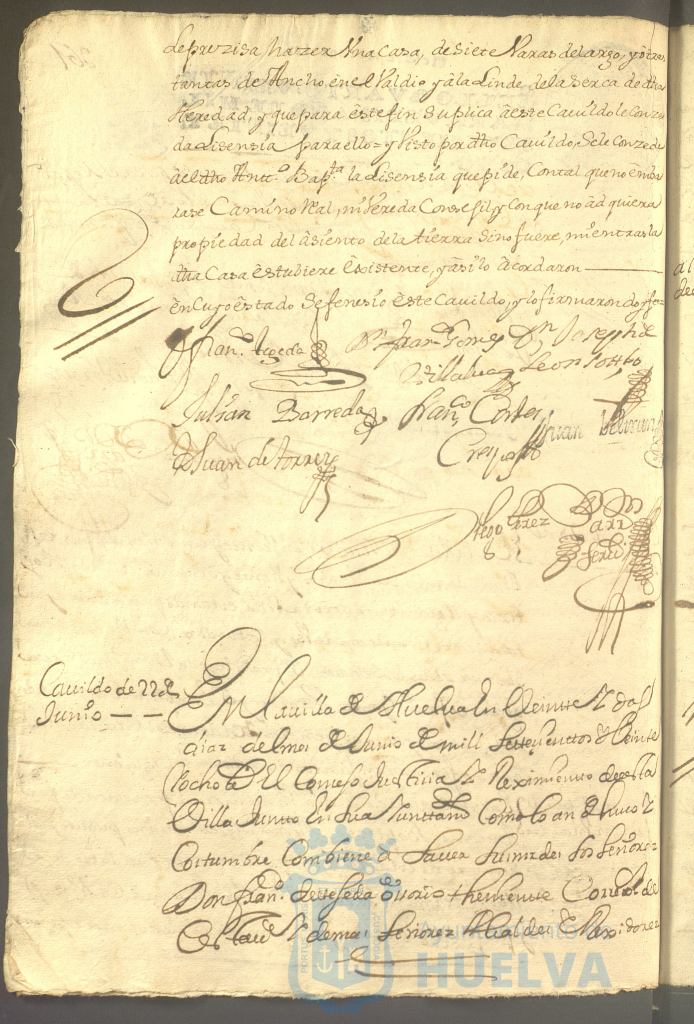 se prezisa hazer Una Casa, de siete Varas de largo, y otras
tantas de Ancho, en el Valdio y a la Linde de la Serca de dha
Heredad, y que para este fin Suplica a este Cavildo le Conze
da Lisensia para ello = y Visto por dho Cavildo, Se le Conzede
a el dho Antt.º Bap.ta la Lisensia que pide, Con tal que no emba
rase Camino Real, ni Vereda Consegil, y Con que no ad quiera
propiedad del asiento de la tierra Sino fuere, mientras la
dha Casa estubiere Existente, y asi lo acordaron
en Cuyo estado Se fenesio este Cavildo, y lo firmaron doy fe=
Fran.º Gomes Dn Joseph de
Villalva Leon
Julian Barreda Fran.co Cortes Juan
Crespo
Juan de torres
Diego Perez
Cavildo de 22 de
Junio — —
En La villa de Huelva En Veinte Y dos
dias del mes de Junio de mill Settesienttos Veinte
Y ocho El Consejo Justicia Y Reximiento de esta
Villa Juntto En Su Como lo an de Uso Y
Costumbre Combiene a Saver los Señores
Don Fran.co de Ossorio theniente Correx.or de
Esta V.a Y demas Señores Alcaldes Rexidores
Ayuntamiento
HUELVA